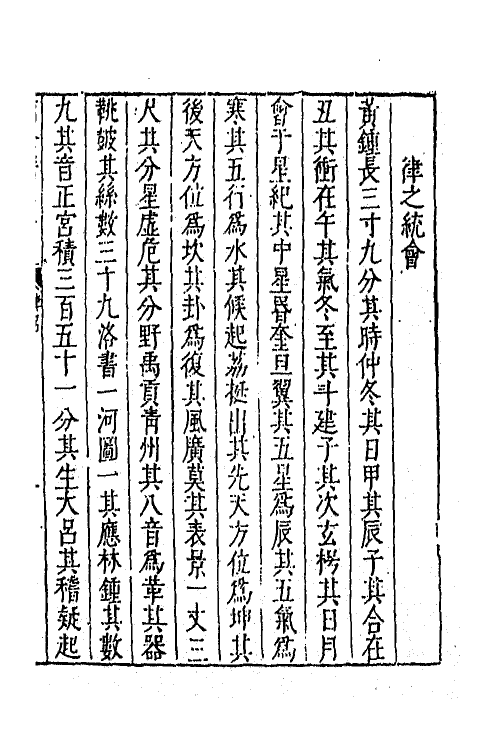 律之統會
黃鍾長三寸九分其時仲冬其日甲其辰子其合在
丑其衝在午其氣冬至其斗建子其次玄枵其日月
會于星紀其中星昏奎旦翼其五星爲辰其五氣爲
寒其五行爲水其候起荔挺出其先天方位爲坤其
後天方位爲坎其卦爲復其風廣莫其表景一丈三
尺其分星虛危其分野禹貢青州其八音爲革其器
鞉皷其絲數三十九洛書一河圖一其應林鍾其數
九其音正宮積三百五十一分其生大呂其稽疑起